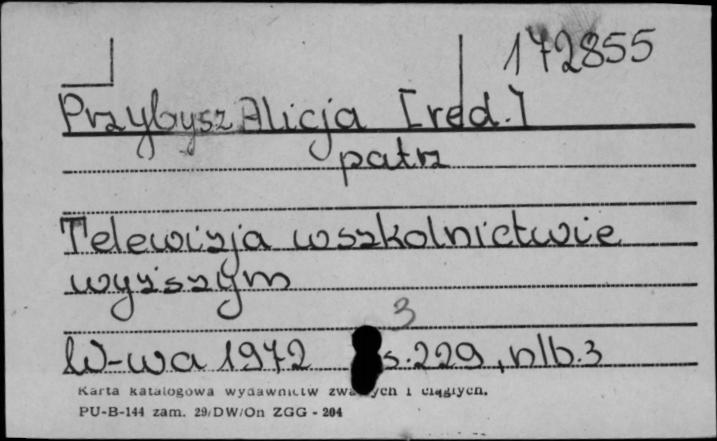 172855
Przybysz Alicja [red.]
patrz
Telewizja w szkolnictwie
wyższym
3
W-wa 1972 s. 229, nlb. 3
Karta katalogowa wydawnictw zwartych i ciągłych.
PU-B-144 zam. 29/DW/On ZGG - 204